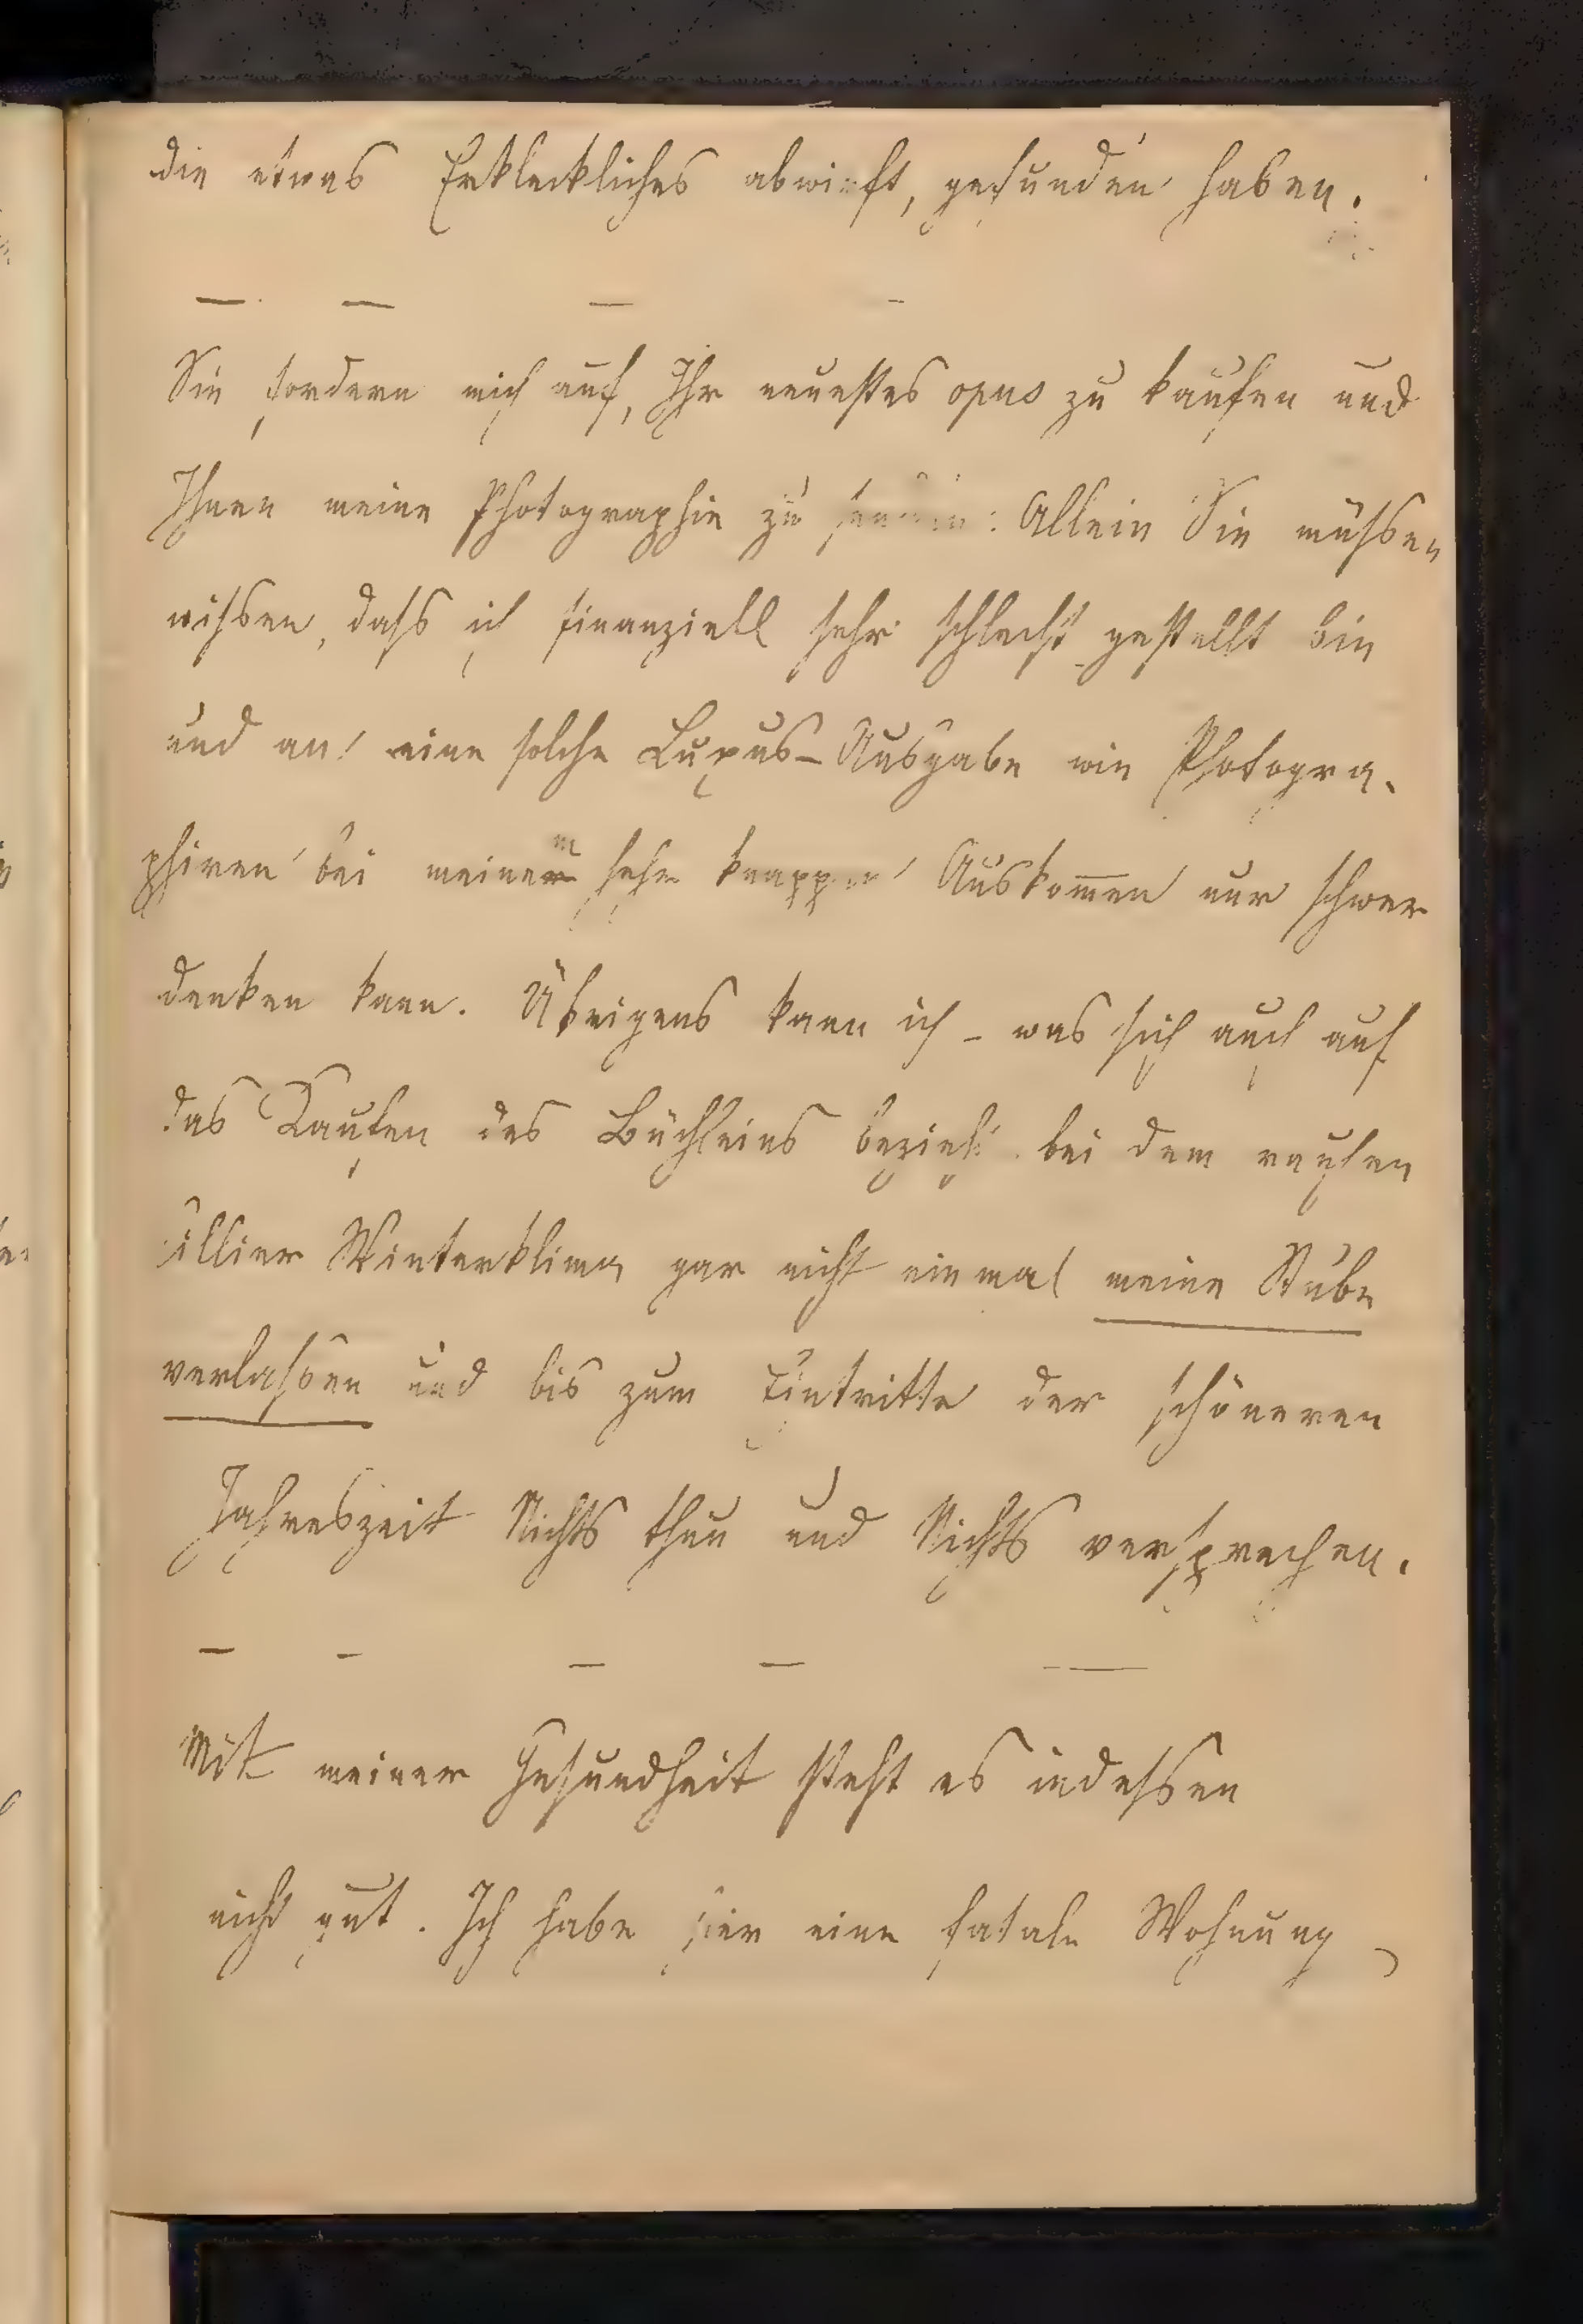 die etwas Erkleckliches abwirft, gefunden haben.
— — — —
Sie fordern mich auf, Ihr neuestes opus zu kaufen und
Ihnen meine Photographie zu senden: Allein Sie müssen
wissen, dass ich finanziell sehr schlecht gestellt bin
und an eine solche Luxus-Ausgabe wie Photogra-
phiren bei meinem sehr knappen Auskom̅en nur schwer
denken kann. Übrigens kann ich – was sich auch auf
das Kaufen des Büchleins bezieht bei dem rauhen
Cillier Winterklima gar nicht einmal meine Stube
verlassen und bis zum Eintritte der schöneren
Jahreszeit Nichts thun und Nichts versprechen.
— — — — —
Mit meiner Gesundheit steht es indessen
nicht gut. Ich habe hier eine fatale Wohnung,